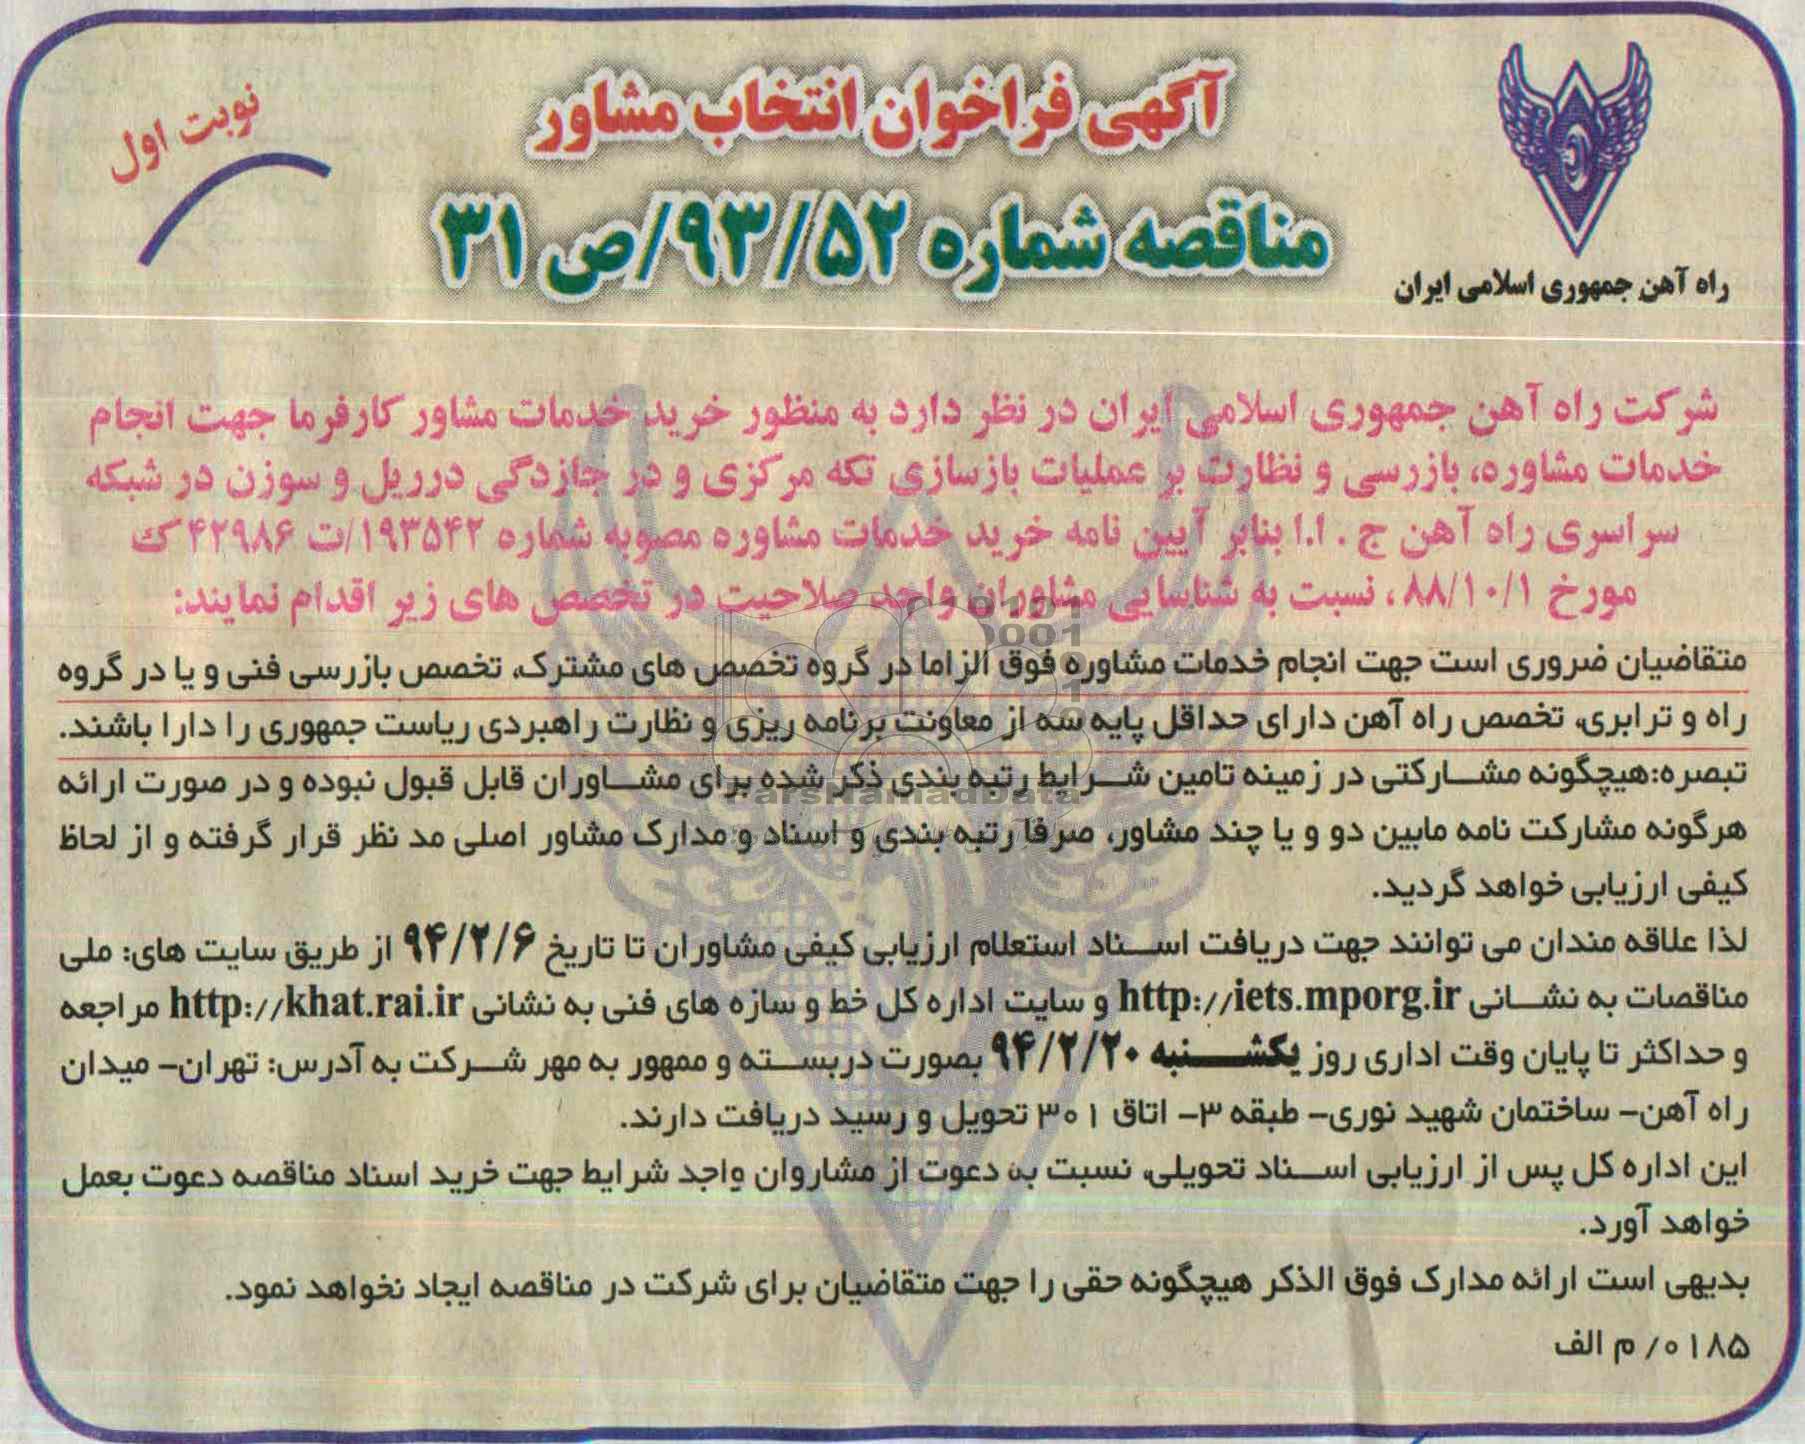 آگهی فراخوان انتخاب مشاور
مناقصه شماره ۹۳/۵۲/ص ۳۱
نوبت اول
راه آهن جمهوری اسلامی ایران
شرکت راه آهن جمهوری اسلامی ایران در نظر دارد به منظور خرید خدمات مشاور کارفرما جهت انجام
خدمات مشاوره، بازرسی و نظارت بر عملیات بازسازی تکه مرکزی و در جازدگی درریل و سوزن در شبکه
سراسری راه آهن ج . ا.ا بنابر آیین نامه خرید خدمات مشاوره مصوبه شماره ۱۹۳۵۴۲/ت ۴۲۹۸۶ ک
مورخ ۸۸/۱۰/۱، نسبت به شناسایی مشاوران واجد صلاحیت در تخصص های زیر اقدام نمایند:
متقاضیان ضروری است جهت انجام خدمات مشاوره فوق الزاما در گروه تخصص های مشترک، تخصص بازرسی فنی و یا در گروه
راه و ترابری، تخصص راه آهن دارای حداقل پایه سه از معاونت برنامه ریزی و نظارت راهبردی ریاست جمهوری را دارا باشند.
تبصره:هیچگونه مشارکتی در زمینه تامین شرایط رتبه بندی ذکر شده برای مشاوران قابل قبول نبوده و در صورت ارائه
هرگونه مشارکت نامه مابین دو و یا چند مشاور، صرفا رتبه بندی و اسناد و مدارک مشاور اصلی مد نظر قرار گرفته و از لحاظ
کیفی ارزیابی خواهد گردید.
لذا علاقه مندان می توانند جهت دریافت اسناد استعلام ارزیابی کیفی مشاوران تا تاریخ ۹۴/۲/۶ از طریق سایت های: ملی
مناقصات به نشانی http://iets.mporg.ir و سایت اداره کل خط و سازه های فنی به نشانی http://khat.rai.ir مراجعه
و حداکثر تا پایان وقت اداری روز یکشنبه ۹۴/۲/۲۰ بصورت دربسته و ممهور به مهر شرکت به آدرس: تهران– میدان
راه آهن– ساختمان شهید نوری– طبقه ۳– اتاق ۳۰۱ تحویل و رسید دریافت دارند.
این اداره کل پس از ارزیابی اسناد تحویلی، نسبت به دعوت از مشاروان واجد شرایط جهت خرید اسناد مناقصه دعوت بعمل
خواهد آورد.
بدیهی است ارائه مدارک فوق الذکر هیچگونه حقی را جهت متقاضیان برای شرکت در مناقصه ایجاد نخواهد نمود.
۰۱۸۵/ م الف
ParsNamadData